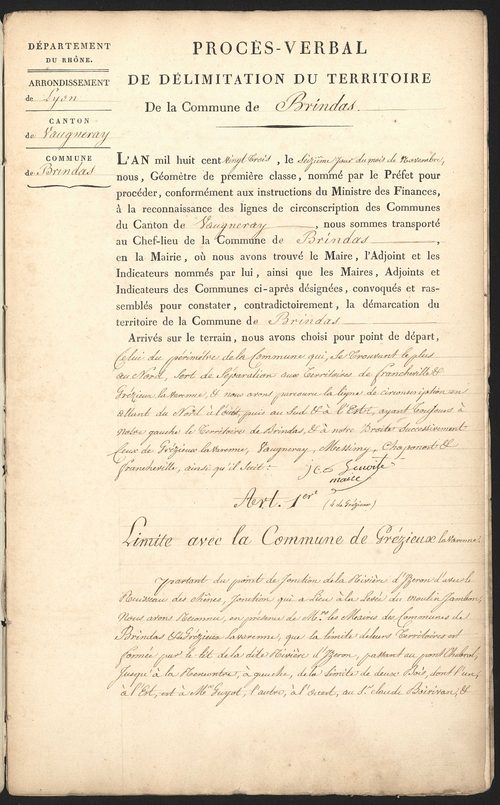 DÉPARTEMENT
DU RHÔNE.
ARRONDISSEMENT
de Lyon
CANTON
de Vaugneray
COMMUNE
de Brindas
PROCÈS-VERBAL
DE DÉLIMITATION DU TERRITOIRE
De la Commune de Brindas.
L'AN mil huit cent Vingt trois, le Seizième jour du mois de Novembre,
nous, Géomètre de première classe, nommé par le Préfet pour
procéder, conformément aux instructions du Ministre des Finances,
à la reconnaissance des lignes de circonscription des Communes
du Canton de Vaugneray, nous sommes transporté
au Chef-lieu de la Commune de Brindas,
en la Mairie, où nous avons trouvé le Maire, l'Adjoint et les
Indicateurs nommés par lui, ainsi que les Maires, Adjoints et
Indicateurs des Communes ci-après désignées, convoqués et ras-
semblés pour constater, contradictoirement, la démarcation du
territoire de la Commune de Brindas
Arrivés sur le terrain, nous avons choisi pour point de départ,
Celui du périmètre de la Commune qui, se trouvant le plus
au Nord, sert de séparation aux Territoires de francheville &
Grézieux la varenne, & nous avons parcouru la ligne de circonscription en
allant du Nord à l'ouest, puis au Sud & à l'Est, ayant toujours à
notre gauche le Territoire de Brindas, & à notre Droite successivement
Ceux de Grézieux la varenne, Vaugneray, Messimy, Chaponost &
francheville, ainsi qu'il suit:
maire
Art. 1er (4 de Grézieux)
Limite avec la Commune de Grézieux la varenne.
partant du point de Jonction de la Rivière d'Yzeron d'avec le
Ruisseau des chênes, Jonction qui a Lieu à la Levée du moulin Jambon,
Nous avons Reconnu, en présence de Mrs. les Maires des Communes de
Brindas & Grézieux la varenne, que la limite de leurs Territoires est
formée par le lit de la dite Rivière d'Yzeron, passant au pont Chabrol,
Jusqu'à la Rencontre, à gauche, de la Limite de deux Bois, dont l'un,
à l'Est, est à Mr Guyot, l'autre, à l'ouest, au Sr. claude Boirivan; &